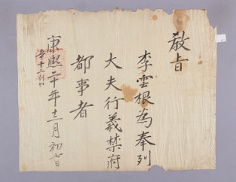 教旨
李雲根為奉列
大夫行義禁府
都事者
康熙二十年十二月初六日